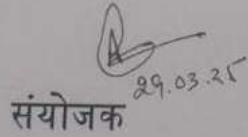 29.03.25
संयोजक